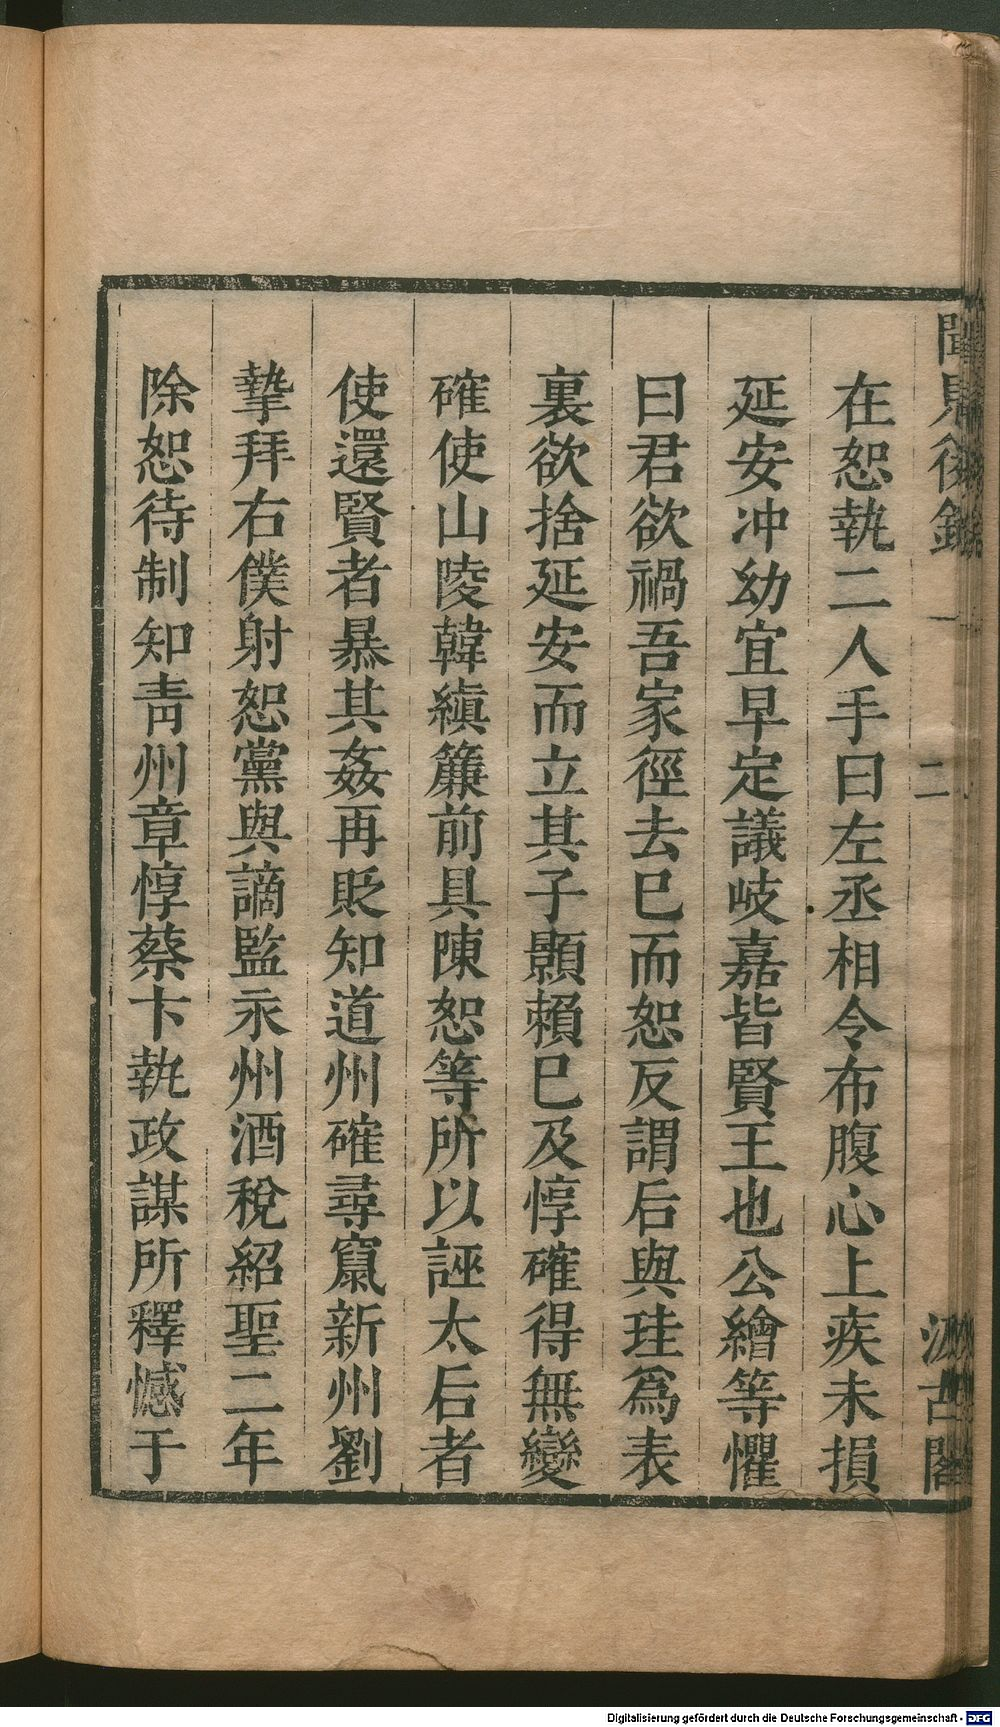 聞見後錄 一 二 汲古閣
在恕執二人手曰左丞相令布腹心上疾未損
延安冲幼宜早定議岐嘉皆賢王也公繪等懼
曰君欲禍吾家徑去巳而恕反謂后與珪爲表
裏欲捨延安而立其子顥賴巳及惇確得無變
確使山陵韓縝簾前具陳恕等所以誣太后者
使還賢者暴其姦再貶知道州確尋竄新州劉
摯拜右僕射恕黨與謫監永州酒稅紹聖二年
除恕待制知靑州章惇蔡卞執政謀所釋憾于
Digitalisierung gefördert durch die Deutsche Forschungsgemeinschaft - DFG